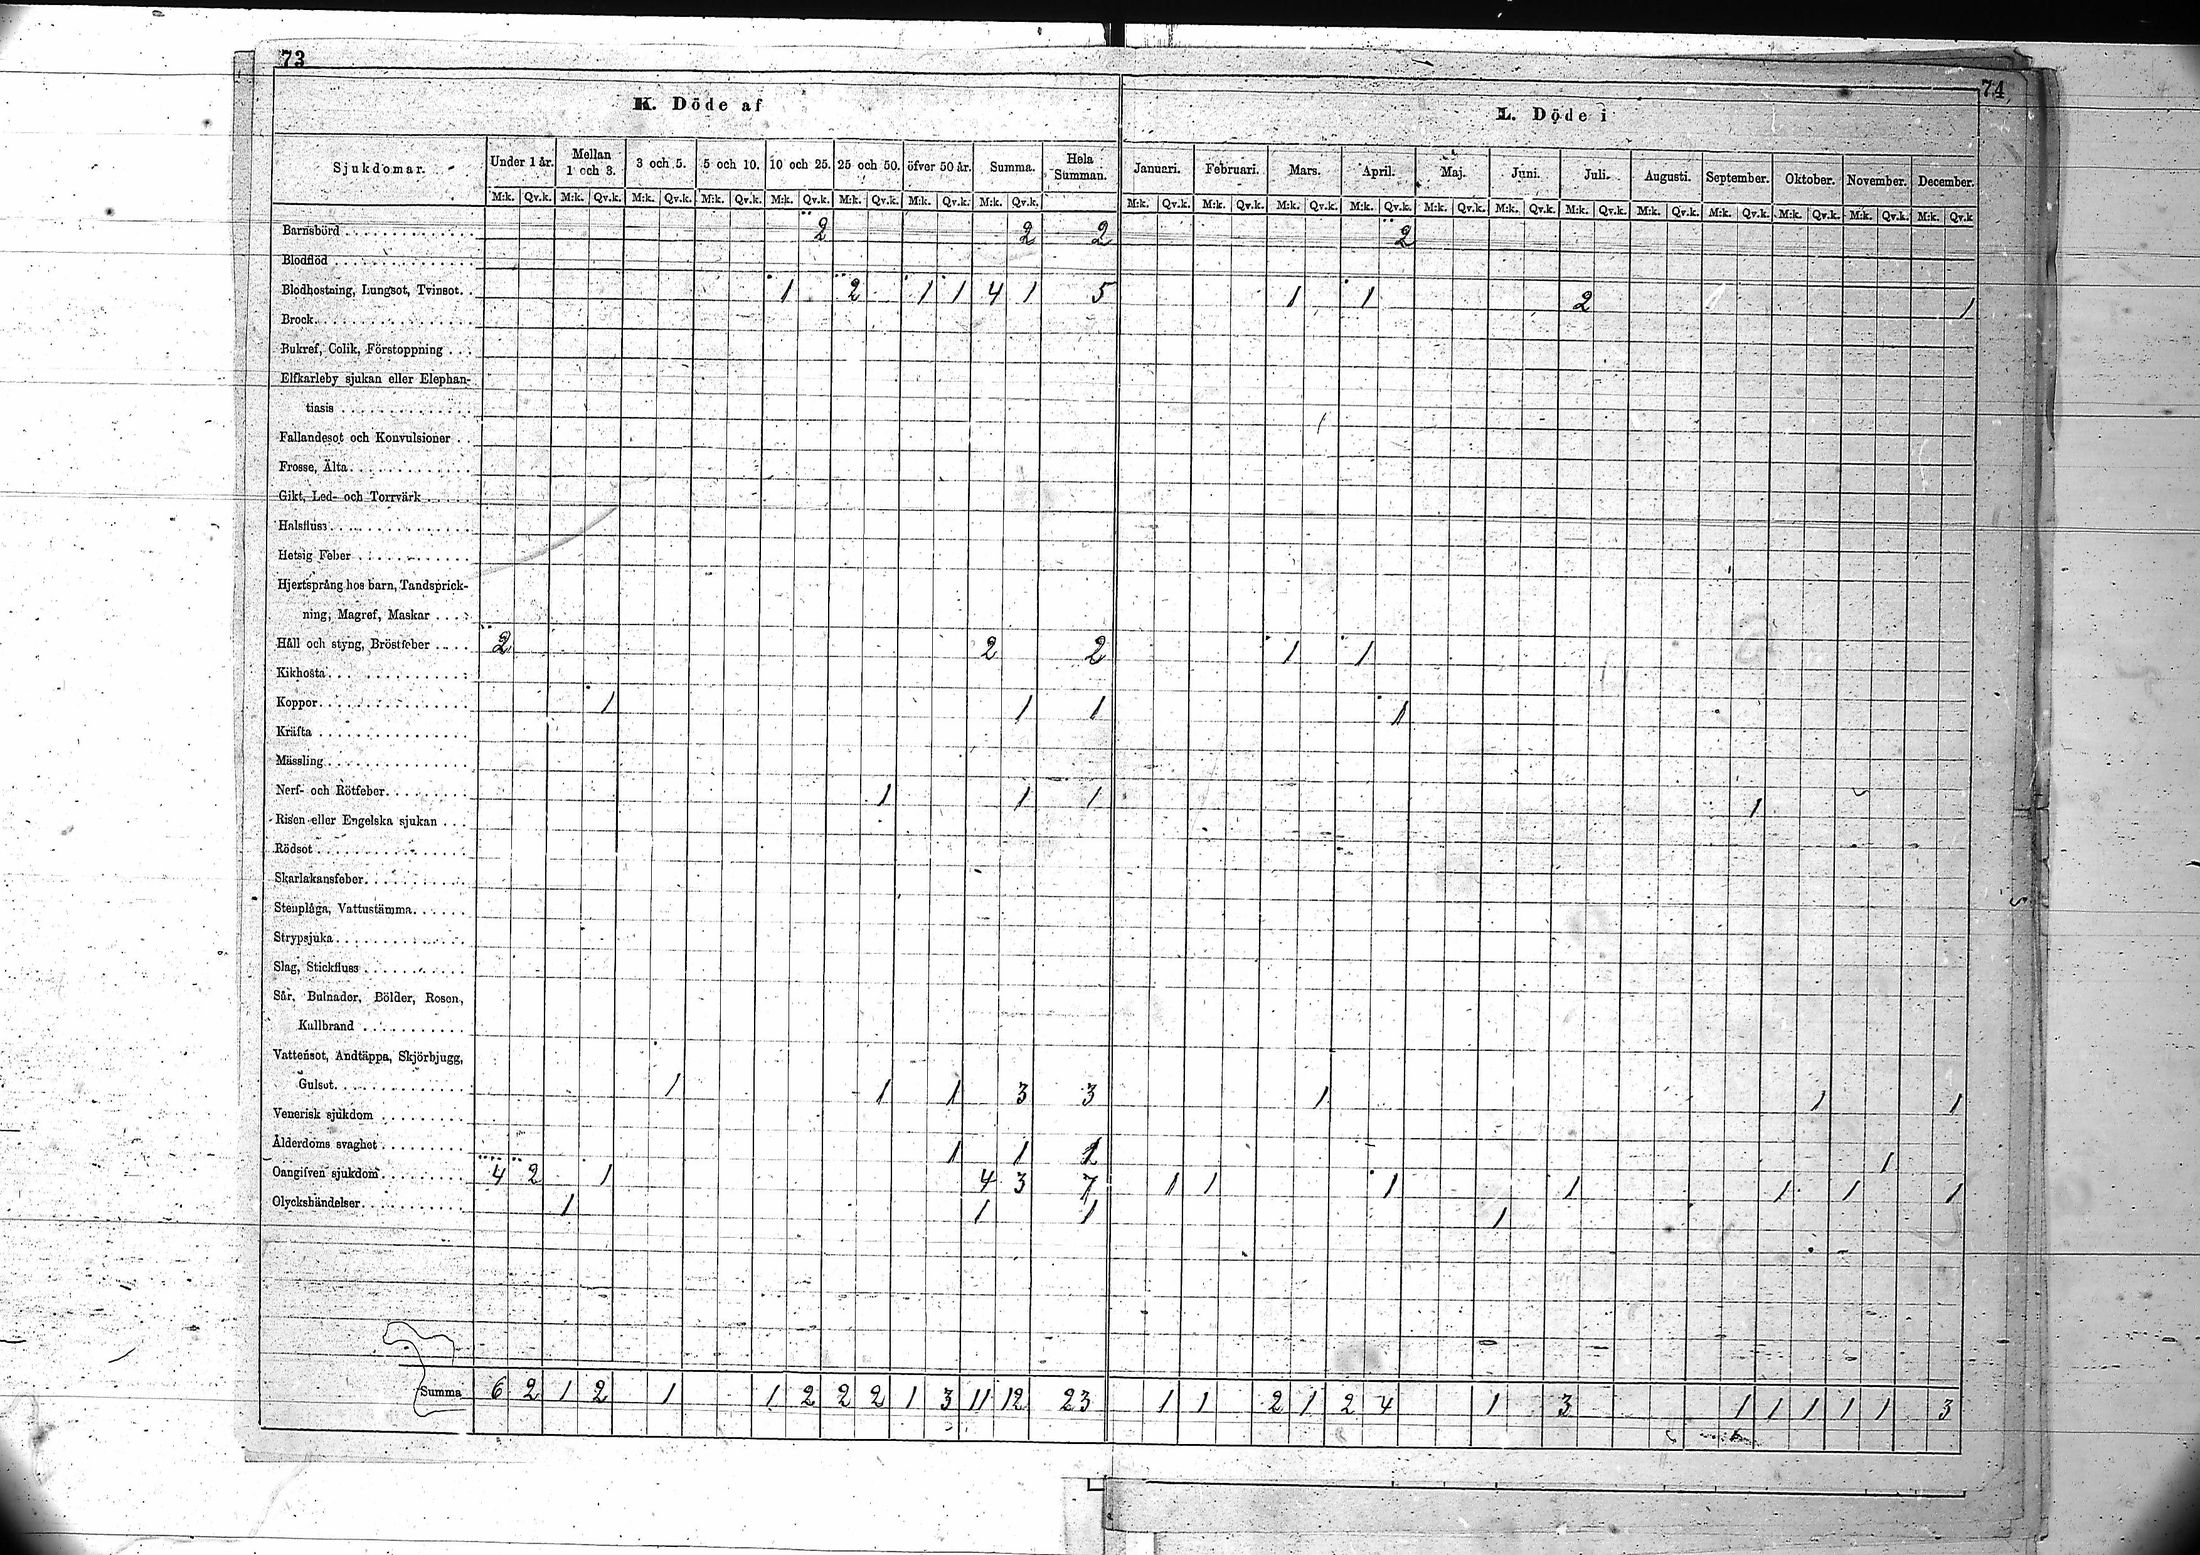 73
74
K. Döde af
L. Döde i
Sjukdomar. Under 1 år. Mellan 1 och 3. 3 och 5. 5 och 10. 10 och 25. 25 och 50. öfver 50 år. Summa. Hela Summan. Januari. Februari. Mars. April. Maj. Juni. Juli. Augusti. September. Oktober. November. December.
M:k. Qv.k. M:k. Qv.k. M:k. Qv.k. M:k. Qv.k. M:k. Qv.k. M:k. Qv.k. M:k. Qv.k. M:k. Qv.k. M:k. Qv.k. M:k. Qv.k. M:k. Qv.k. M:k. Qv.k. M:k. Qv.k. M:k. Qv.k. M:k. Qv.k. M:k. Qv.k. M:k. Qv.k. M:k. Qv.k. M:k. Qv.k. M:k. Qv.k
Barnsbörd 2 2 2 2
Blodflöd
Blodhostning, Lungsot, Tvinsot. 1 2 1 1 4 1 5 1 1 2 1
Brock
Bukref, Colik, Förstoppning
Elfkarleby sjukan eller Elephan-
tiasis
Fallandesot och Konvulsioner
Frosse, Älta
Gikt, Led- och Torrvärk
Halsfluss
Hetsig Feber
Hjertsprång hos barn, Tandsprick-
ning, Magref, Maskar
Håll och styng, Bröstfeber 2 2 2 1 1
Kikhosta
Koppor 1 1 1 1
Kräfta
Mässling
Nerf- och Rötfeber 1 1 1 1
Risen eller Engelska sjukan
Rödsot
Skarlakansfeber
Stenplåga, Vattustämma
Strypsjuka
Slag, Stickfluss
Sår, Bulnader, Bölder, Rosen,
Kallbrand
Vattensot, Andtäppa, Skjörbjugg,
Gulsot 1 1 1 3 3 1 1 1
Venerisk sjukdom
Ålderdoms svaghet 1 1 1 1
Oangifven sjukdom 4 2 1 4 3 7 1 1 1 1 1 1 1
Olyckshändelser 1 1 1 1
Summa 6 2 1 2 1 1 2 2 2 1 3 11 12 23 1 1 2 1 2 4 1 3 1 1 1 1 1 3